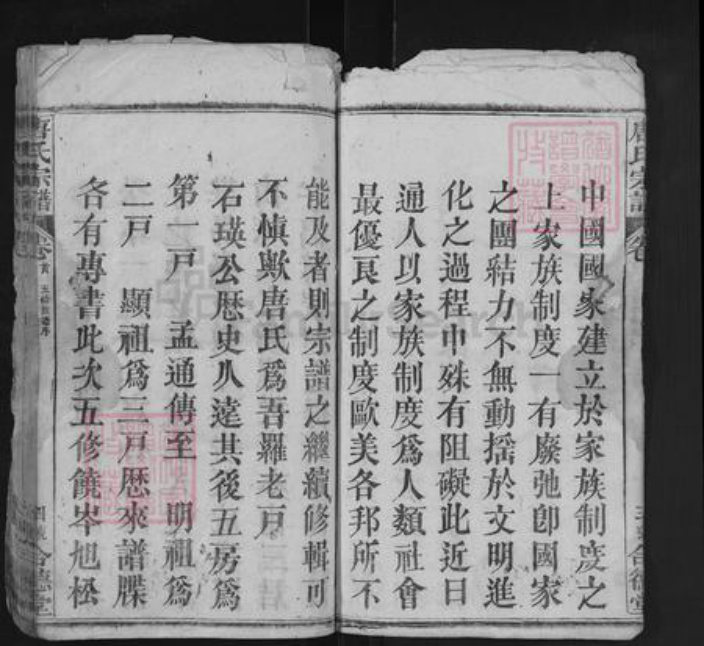 中國國家建立於家族制度之
上家族制度一有廢弛卽國家
之團結力不無動搖於文明進
化之過程中殊有阻礙此近日
通人以家族制度爲人類社會
最優良之制度歐美各邦所不
能及者則宗譜之繼續修輯可
不愼歟唐氏爲吾羅老戸
石瑛公歴史久遠其後五房爲
第一戸 孟通傳至 明祖爲
二戸 顯祖爲三戸歴來譜牒
各有專書此次五修饒岑旭松
唐氏宗譜
卷首
合德堂
唐氏宗譜
卷
合德堂